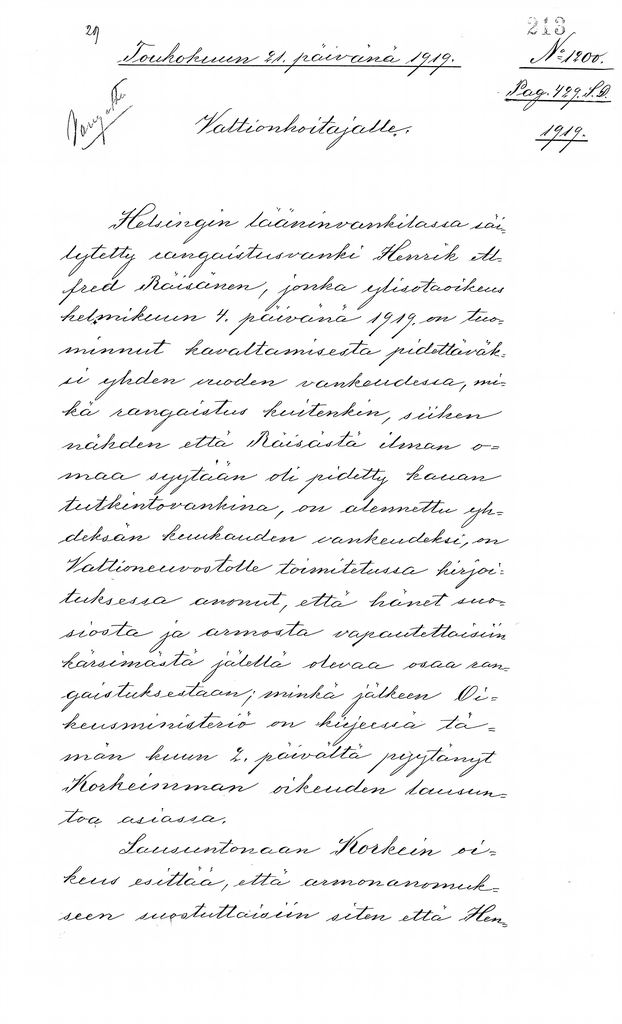 29
213
Toukokuun 21. päivänä 1919.
No 1200.
Pag. 429. S.D.
1919.
Valtionhoitajalle.
Helsingin lääninvankilassa säi=
lytetty rangaistusvanki Henrik Al=
fred Räisänen, jonka ylisotaoikeus
helmikuun 4. päivänä 1919 on tuo=
minnut kavaltamisesta pidettäväk=
si yhden vuoden vankeudessa, mi=
kä rangaistus kuitenkin, siihen
nähden että Räisästä ilman o=
maa syytään oli pidetty kauan
tutkintovankina, on alennettu yh=
deksän kuukauden vankeudeksi, on
Valtioneuvostolle toimitetussa kirjoi=
tuksessa anonut, että hänet suo=
siosta ja armosta vapautettaisiin
kärsimästä jälellä olevaa osaa ran=
gaistuksestaan; minkä jälkeen Oi=
keusministeriö on kirjeessä tä=
män kuun 2. päivältä pyytänyt
Korkeimman oikeuden lausun=
toa asiassa.
Lausuntonaan Korkein oi=
keus esittää, että armonanomuk=
seen suostuttaisiin siten että Hen=